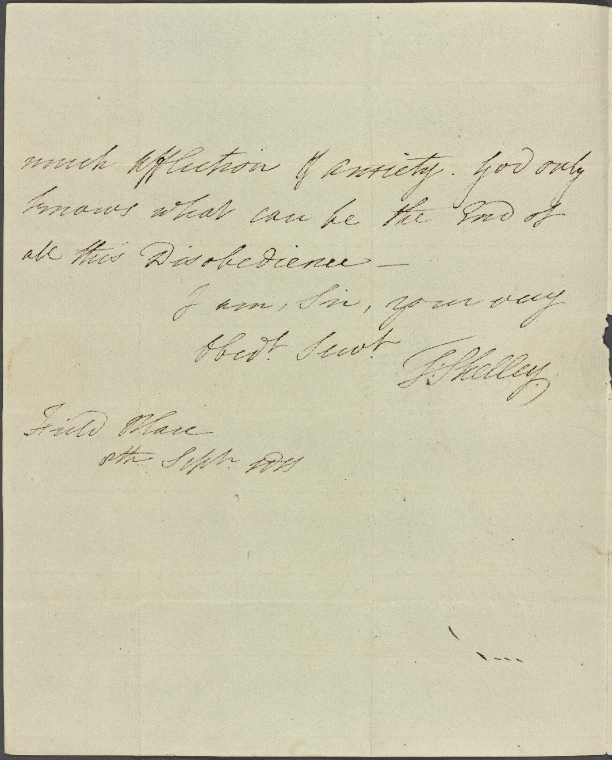 much affliction & anxiety. God only
knows what can be the End of
all this Disobedience —
I am, Sir, your very
Obedt. Servt.
T. Shelley.
Field Place
8th. Sept. 1811